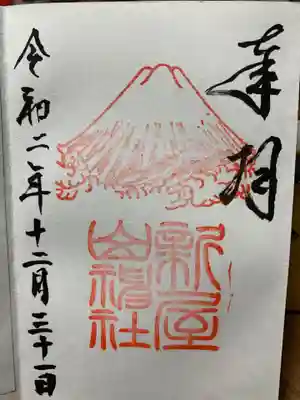 奉拝
新屋
山神社
令和二年十二月三十一日